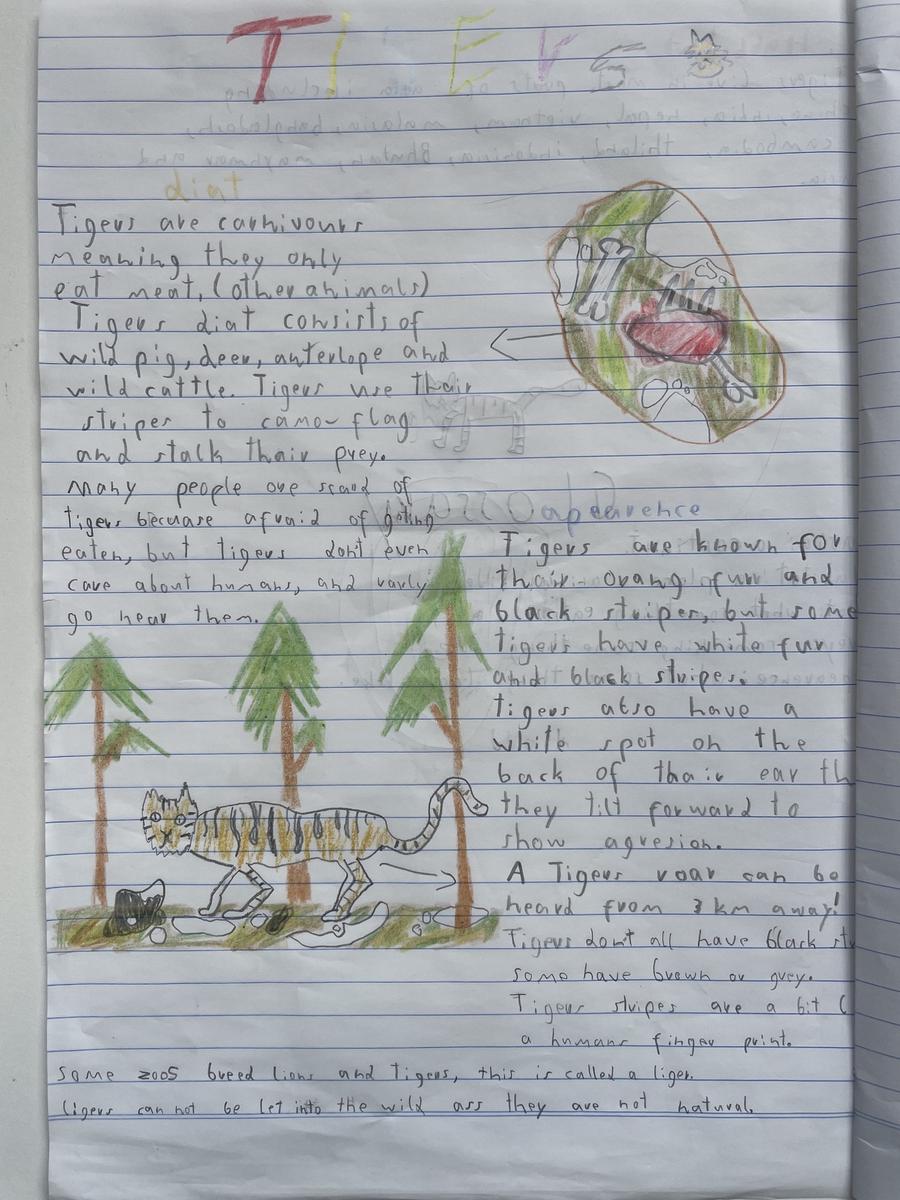 TIGErs
diat
Tigers are carnivours
meaning they only
eat meat, (other animals)
Tigers diat consists of
wild pig, deer, anterlope and
wild cattle. Tigers use thair
stripes to camo-flag
and stalk thair prey.
Many people are scard of
tigers becuase afraid of geting
eaten, but tigers don't even
care about humans, and rarly
go near them.
apearence
Tigers are known for
thair orang fur and
black stripes, but some
tigers have white fur
and black stripes.
tigers also have a
white spot on the
back of thair ear th
they tilt forward to
show agresion.
A Tigers roar can be
heard from 3 km away!
Tigers dont all have black st
some have brown or grey.
Tigers stripes are a bit
a humans finger print.
Some zoos breed lions and Tigers, this is called a liger.
ligers can not be let into the wild ass they are not natural.